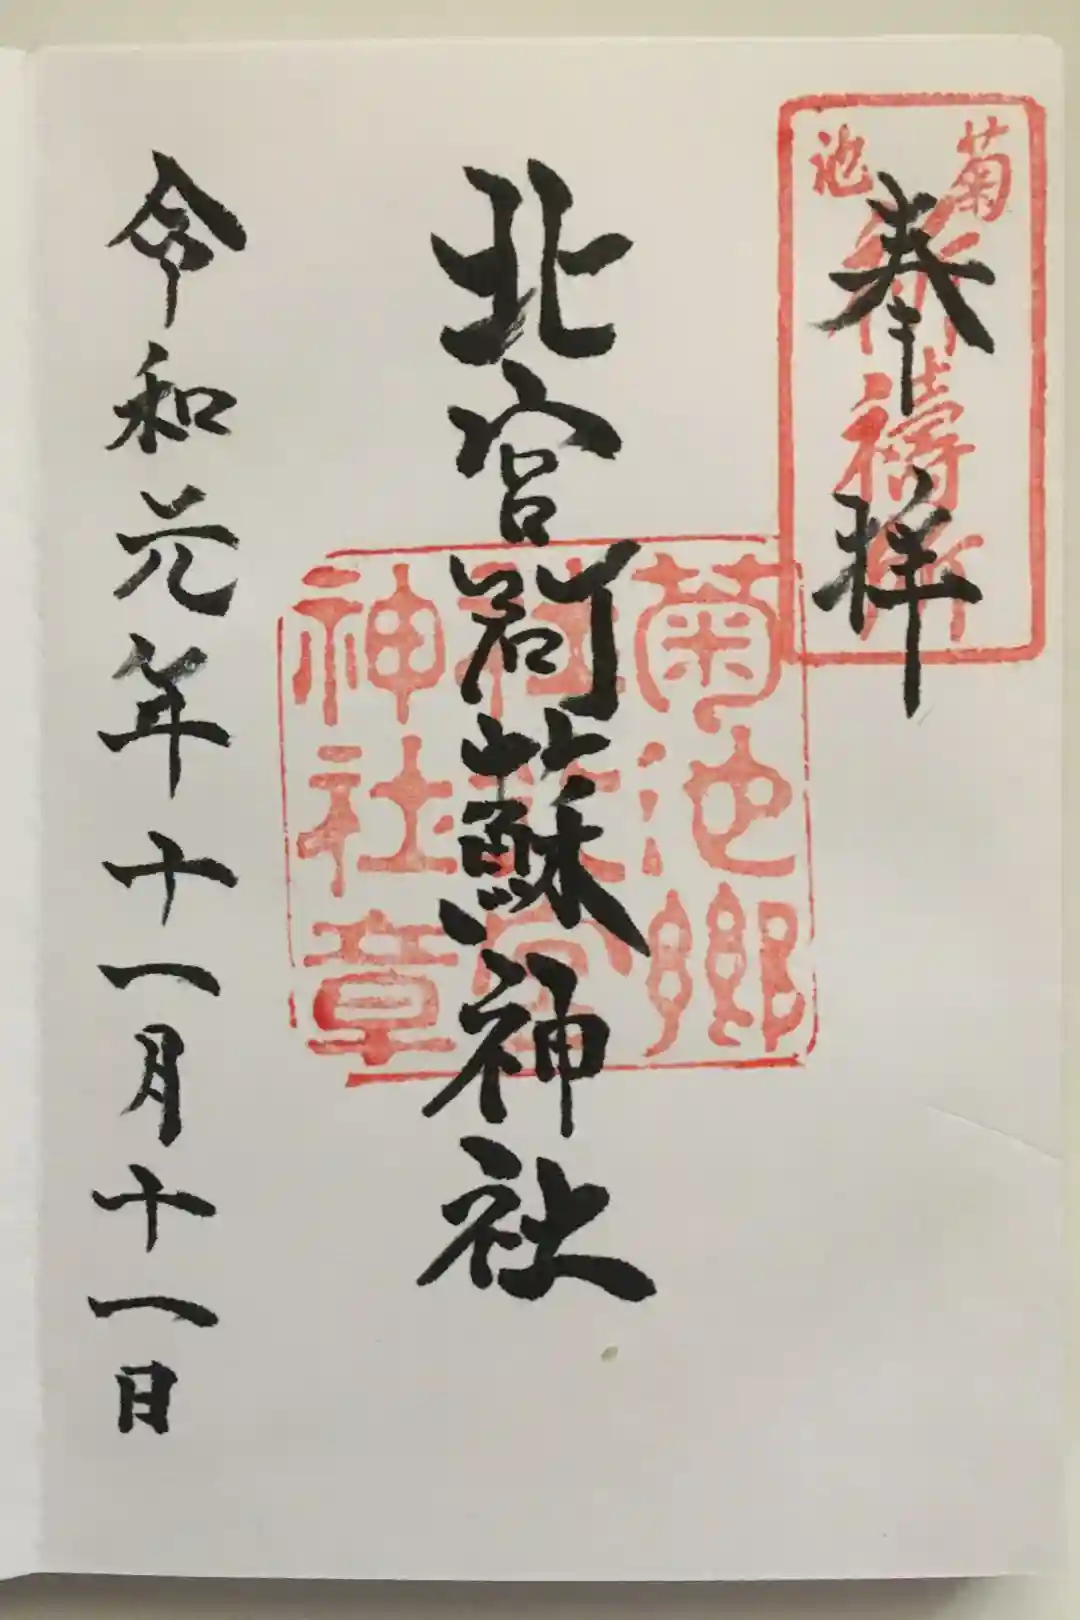 菊池
祈禱所
奉拝
北宮阿蘇神社
菊池郷
神社章
令和元年十一月十一日